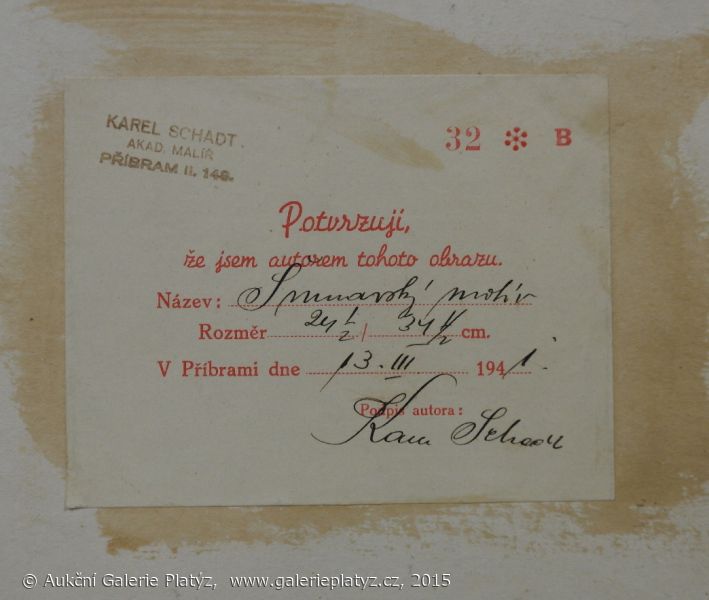 KAREL SCHADT
AKAD. MALÍŘ
PŘÍBRAM II. 149.
32 ❇ B
Potvrzuji,
že jsem autorem tohoto obrazu.
Název: Šumavský motiv
Rozměr 24 1/2 / 34 1/2 cm.
V Příbrami dne 13. III 1941.
Podpis autora:
Karel Schadt
© Aukční Galerie Platýz, www.galerieplatyz.cz, 2015